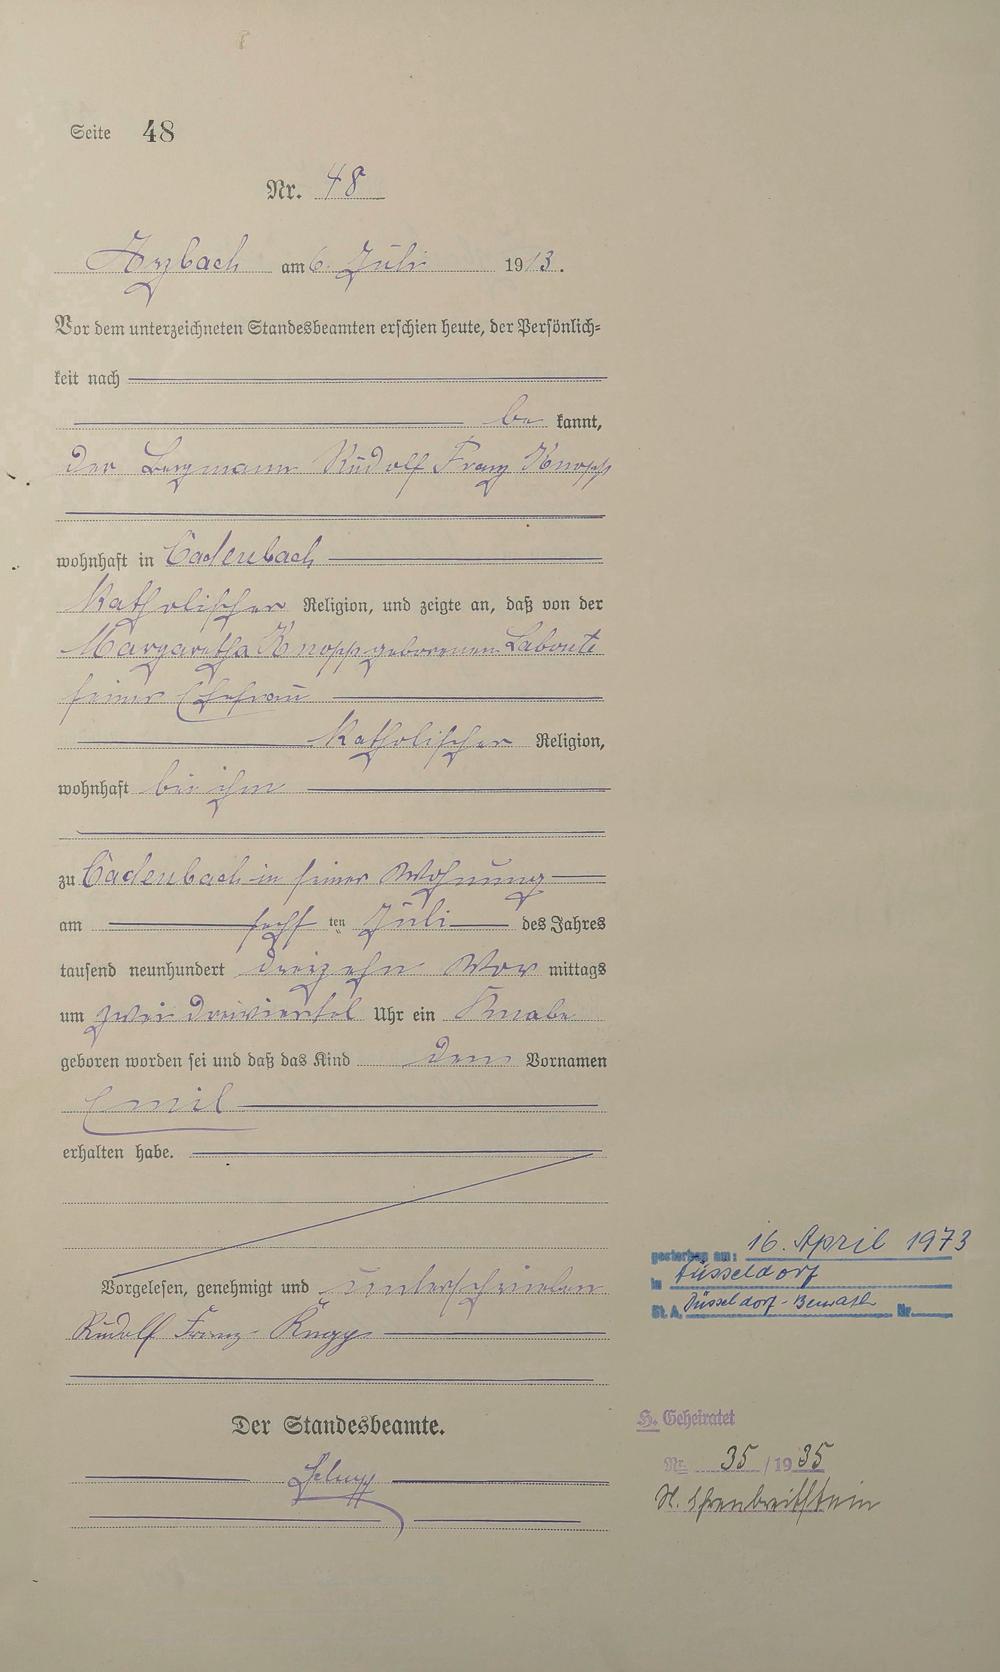 Seite 48
Nr. 48
Arzbach am 6. Juli 1913.
Vor dem unterzeichneten Standesbeamten erschien heute, der Persönlich=
keit nach
be kannt,
der Bergmann Rudolf Franz Knopp
wohnhaft in Cadenbach
katholischer Religion, und zeigte an, daß von der
Margaretha Knopp geborenen Labonte
seiner Ehefrau
katholischer Religion,
wohnhaft bei ihm
zu Cadenbach in seiner Wohnung
am sechs ten Juli des Jahres
tausend neunhundert dreizehn Vor mittags
um zwei dreiviertel Uhr ein Knabe
geboren worden sei und daß das Kind den Vornamen
Emil
erhalten habe.
Vorgelesen, genehmigt und unterschrieben
Rudolf Franz Knopp
Der Standesbeamte.
gestorben am: 16. April 1973
in Düsseldorf
St. A. Düsseldorf-Benrath Nr.
H. Geheiratet
Nr. 35 / 1935
St. Ehrenbreitstein